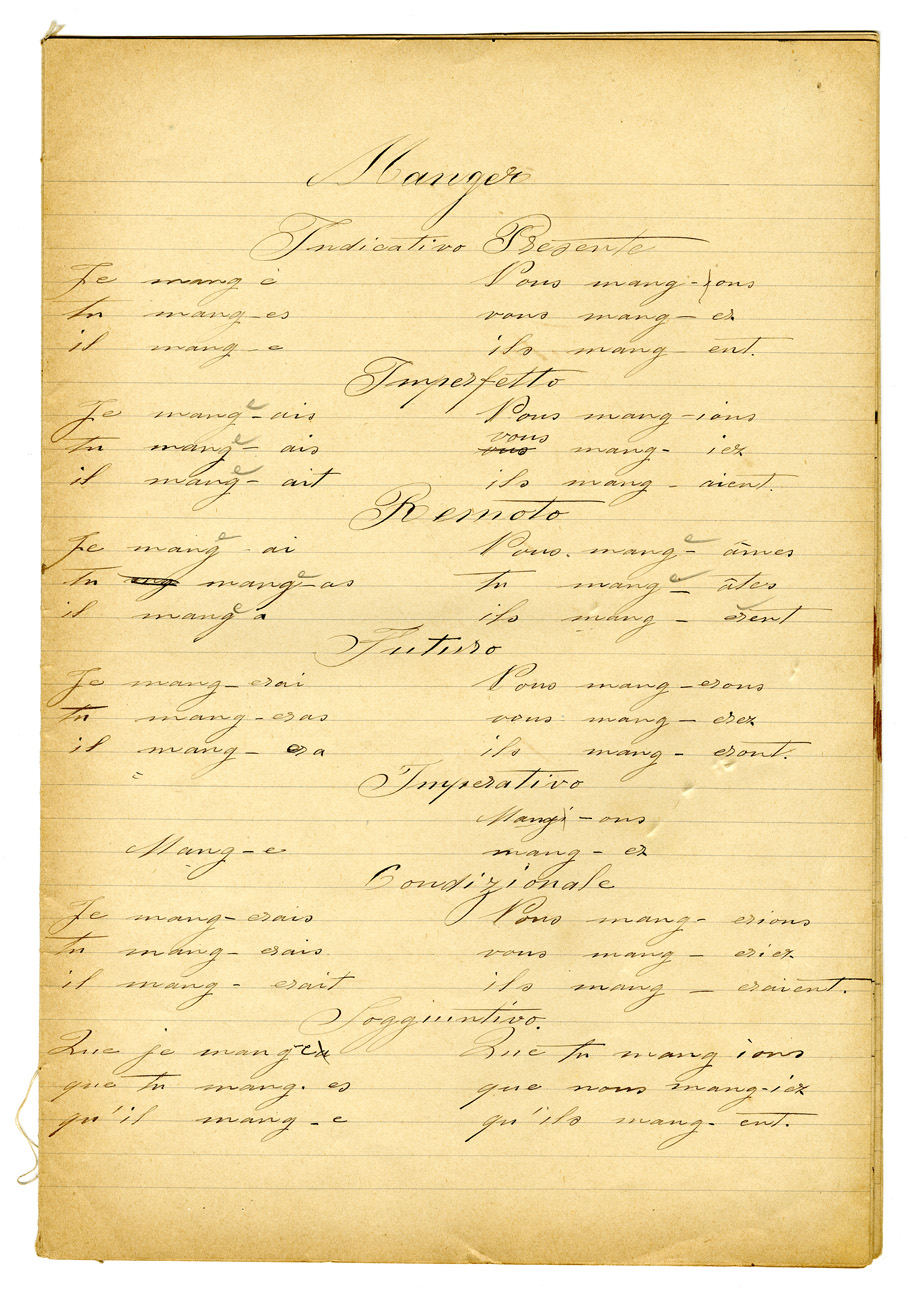 Manger
Indicativo Presente
Je mang e Nous mang-ions
tu mang-es vous mang-ez
il mang-e ils mang-ent.
Imperfetto
Je mange-ais Nous mang-ions
tu mange-ais vous mang-iez
il mange-ait ils mang-aient.
Remoto
Je mange-ai Nous. mange-âmes
tu mange-as tu mange-âtes
il mange a ils mang-èrent
Futuro
Je mang-erai Nous mang-erons
tu mang-eras vous mang-erez
il mang-era ils mang-eront.
Imperativo
Mangi-ons
Mang-e mang-ez
Condizionale
Je mang-erais Nous mang-erions
tu mang-erais vous mang-eriez
il mang-erait ils mang-eraient.
Soggiuntivo.
Que je mange Que tu mang ions
que tu mang-es que nous mang-iez
qu'il mang-e qu'ils mang-ent.